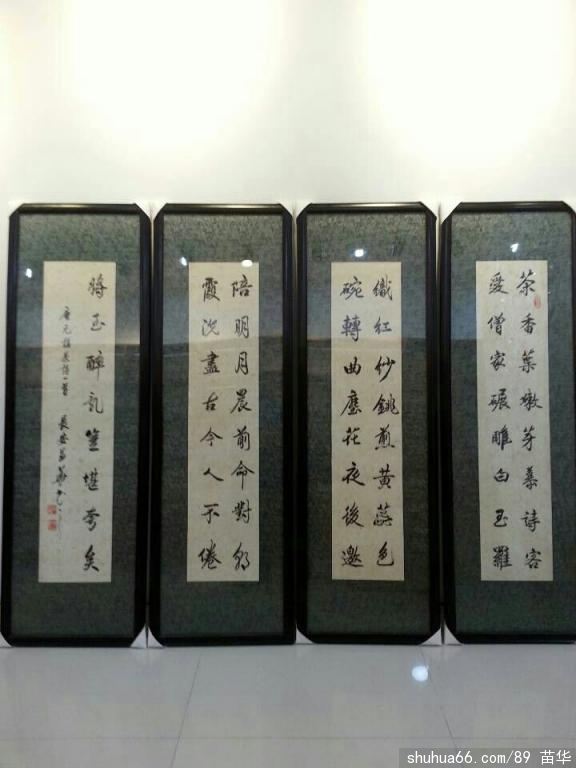 茶香葉嫩芽慕詩客
愛僧家碾雕白玉羅
織紅紗銚煎黃蕊色
碗轉曲塵花夜後邀
陪明月晨前命對朝
霞洗盡古今人不倦
將至醉亂豈堪夸矣
唐元稹茶詩一首 長安苗華書
shuhua66.com/89 苗华